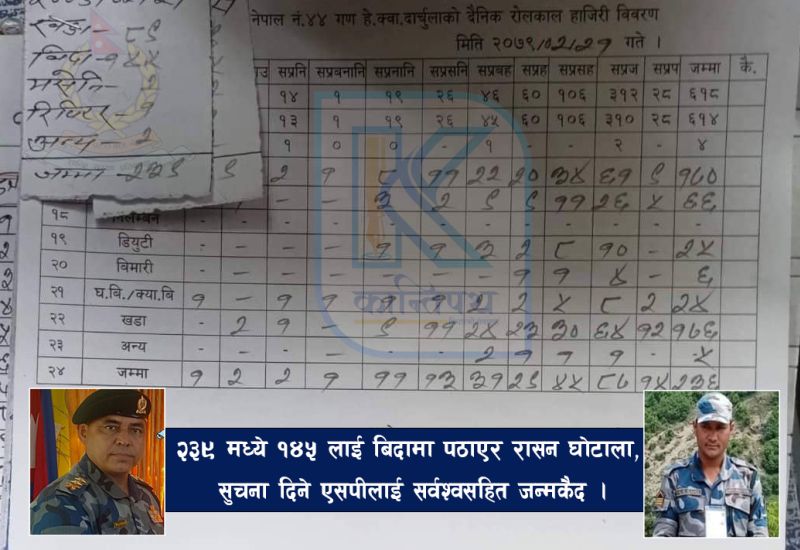 नेपाल नं.४४ गण हे.क्वा.दार्चुलाको दैनिक रोलकाल हाजिरी बिबरण
मिति २०७९/०२/२९ गते ।
सप्रनि सप्रबनानि सप्रनानि सप्रसनि सप्रबह सप्रह सप्रसह सप्रज सप्रप जम्मा कै.
१४ १ १९ २६ ४६ ६० १०६ ३१२ २८ ६१८
१३ १ १९ २६ ४५ ६० १०६ ३१० २८ ६१४
१ ० ० - १ - - २ - ४
जम्मा - २३९
९ २ १ ८ ११ २२ २० ३४ ६१ ९ १७०
- - ३ २ ९ ९ ११ २६ ४ ६६
१८ निलम्बन - - - - - - - - - - -
१९ डियुटी - - - - १ १ ३ २ ८ १० - २५
२० बिमारी - - - - - - - १ १ ४ - ६
२१ घ.बि./क्या.बि १ - १ १ १ १ २ २ ४ ८ २ २४
२२ खडा - २ १ - ९ ११ २४ २३ ३० ६४ १२ १७६
२३ अन्य - - - - - - २ १ १ १ - ५
२४ जम्मा १ २ २ १ ११ १३ ३१ २९ ४५ ८७ १४ २३६
कान्तिपथ
२३९ मध्ये १४५ लाई बिदामा पठाएर रासन घोटाला,
सुचना दिने एसपीलाई सर्वश्वसहित जन्मकैद ।